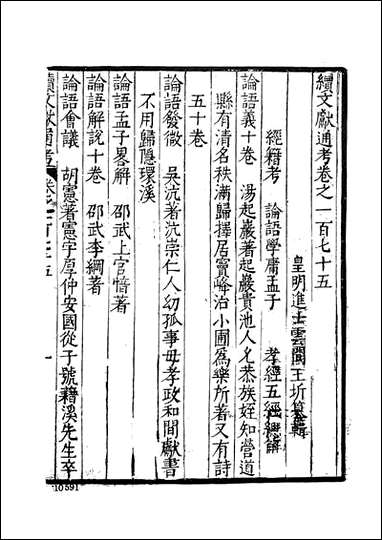 續文獻通考卷之一百七十五
皇明進士雲間王圻纂輯
經籍考　論語學庸孟子　孝經五經總辭
論語義十卷　湯起巖著起巖貴池人允恭族姪知營道
縣有清名秩滿歸擇居竇峰治小圃爲樂所著又有詩
五十卷
論語發微　吳沆著沆崇仁人幼孤事母孝政和間獻書
不用歸隱環溪
論語孟子畧解　邵武上官愔著
論語解說十卷　邵武李綱著
論語會議　胡憲著憲字原仲安國從子號籍溪先生卒
續文獻通考 卷之一百七十五 一
10591